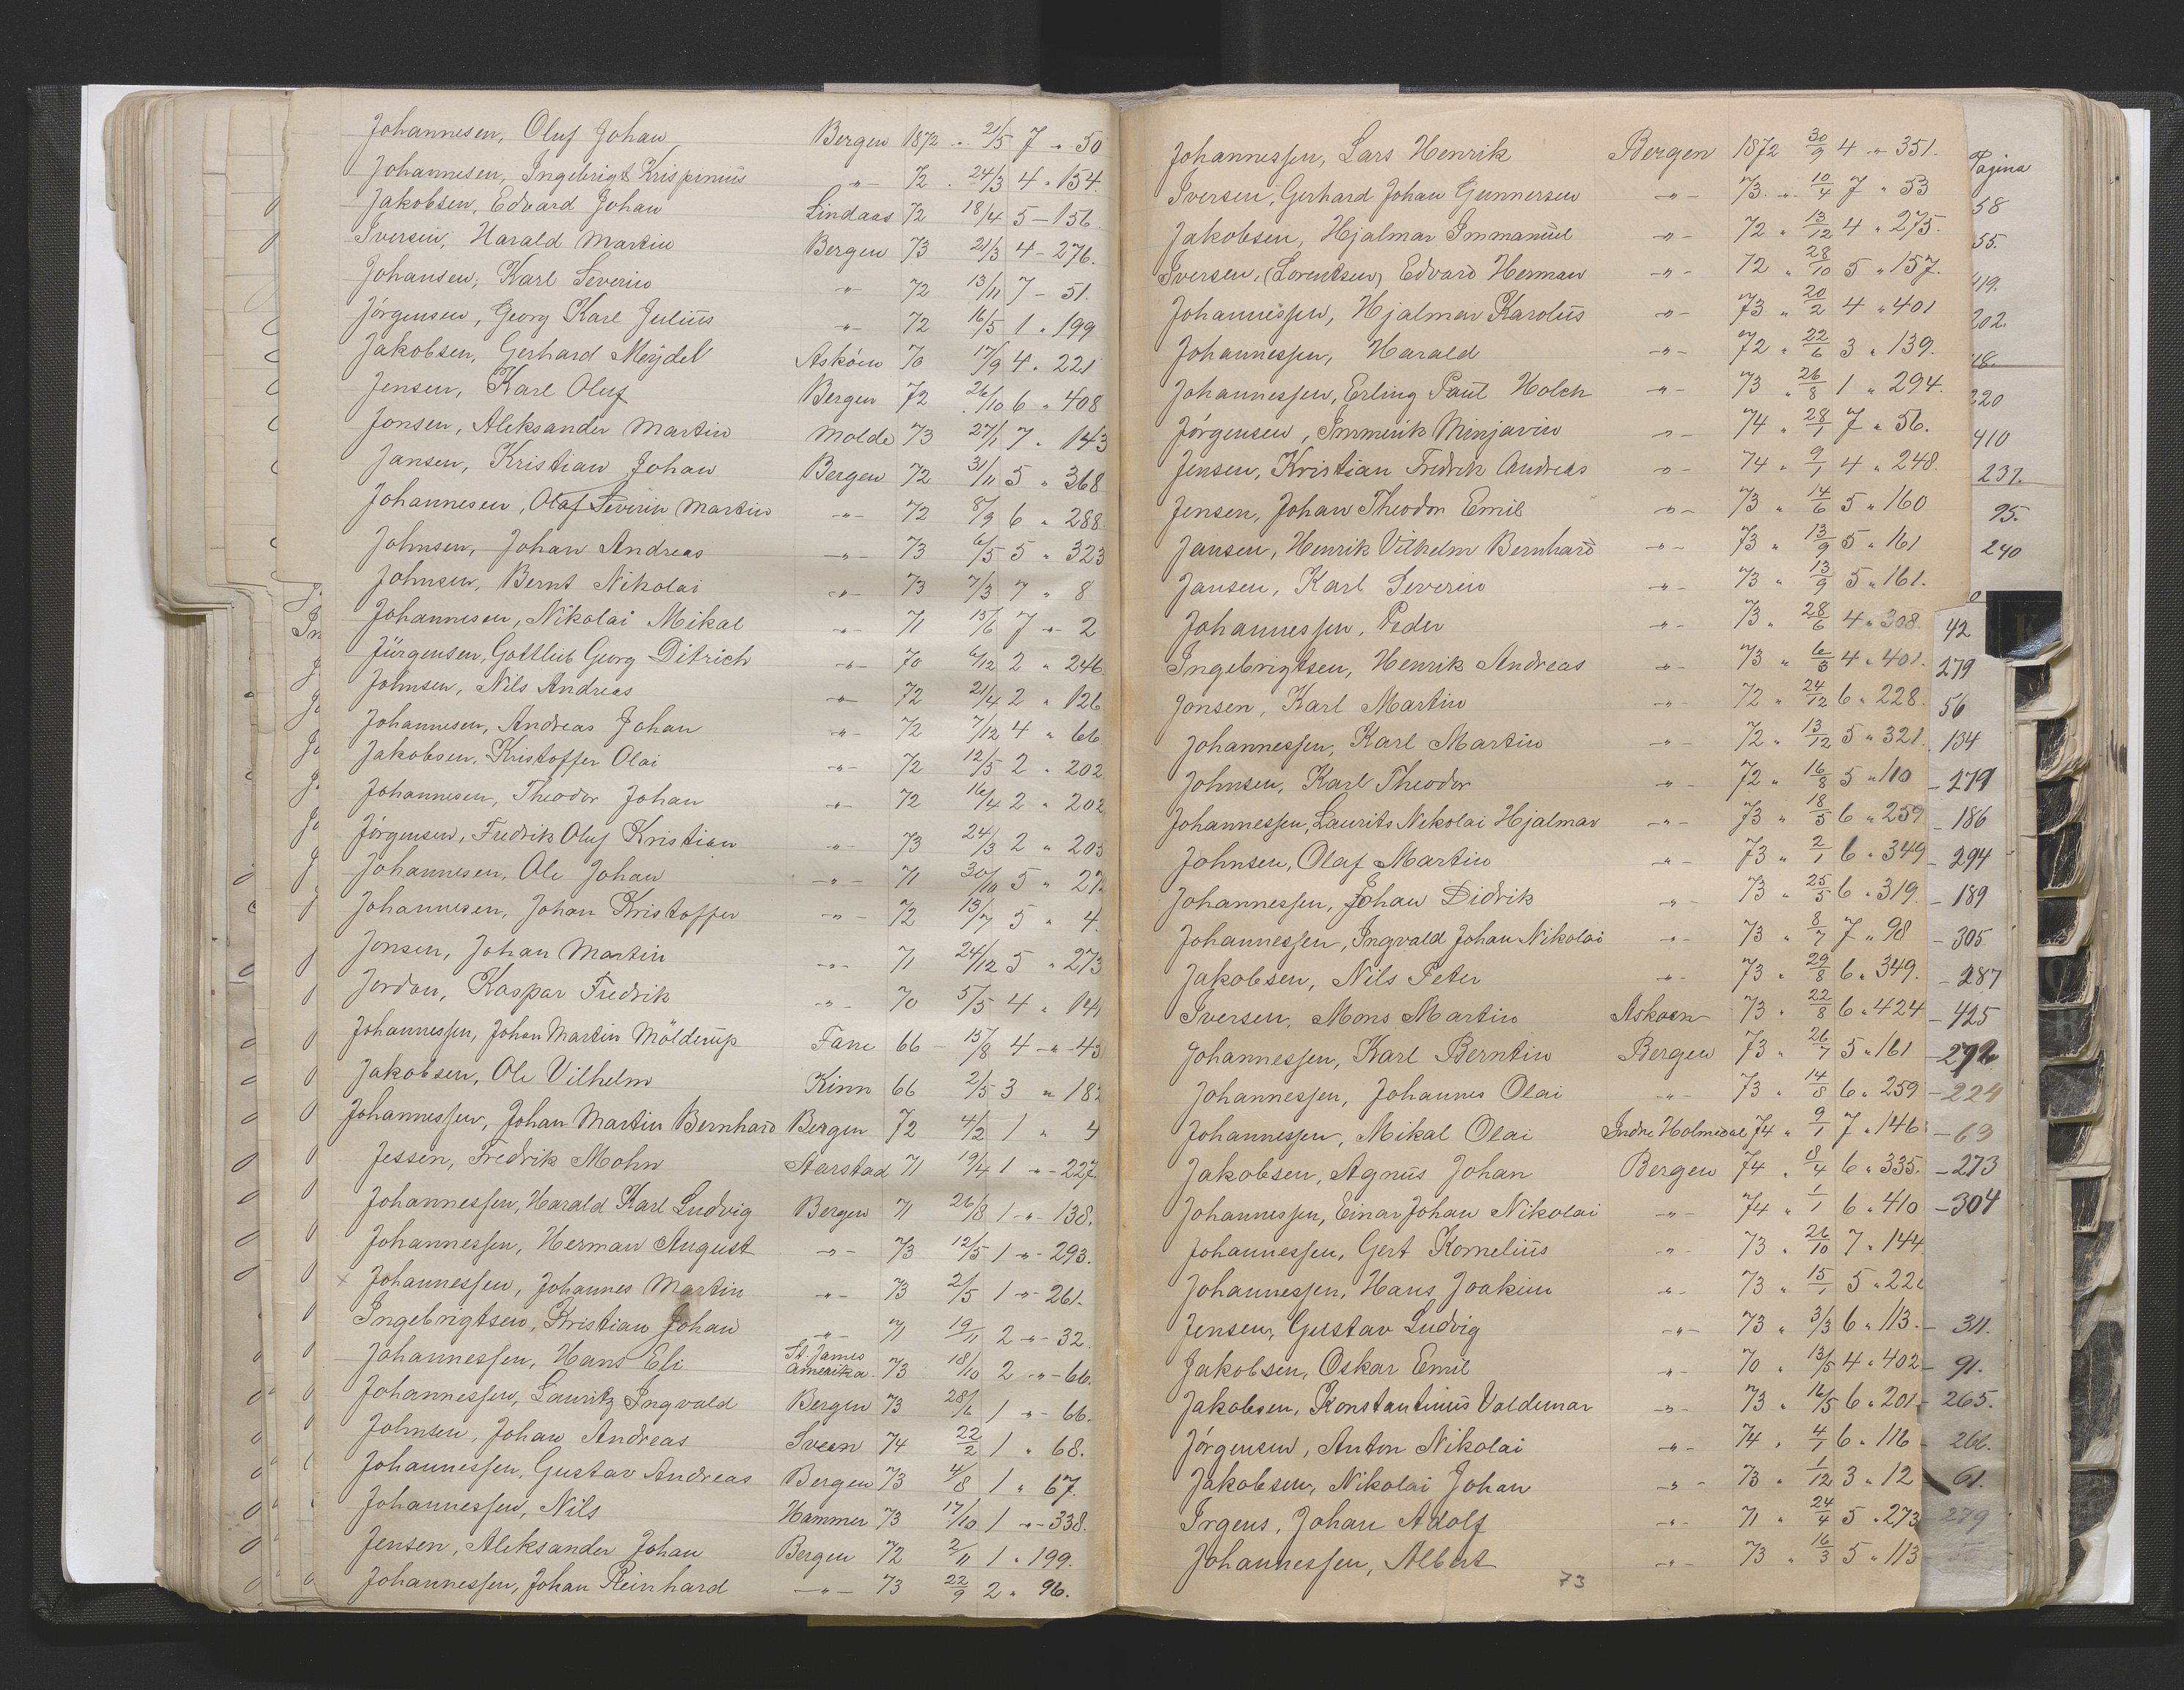 Johannesen, Oluf Johan Bergen 1872 " 21/5 7 " 50
Johannesen, Ingebrigt Krispinius -"- 72 " 24/3 4 " 154.
Jakobsen, Edvard Johan Lindaas 72 18/4 5 - 156
Iversen, Harald Martin Bergen 73 21/3 4 - 276.
Johansen, Karl Severin -"- 72 13/11 7 - 51.
Jörgensen, Georg Karl Julius -"- 72 16/5 1 " 199
Jakobsen, Gerhard Meydel Asköen 70 17/9 4 " 221
Jensen, Karl Oluf Bergen 72 26/10 6 " 408
Jonsen, Aleksander Martin Molde 73 27/1 7 " 143
Jansen, Kristian Johan Bergen 72 31/11 5 " 368
Johannesen, Olaf Severin Martin -"- 72 8/9 6 " 288.
Johnsen, Johan Andreas -"- 73 6/5 5 " 323
Johnsen, Bernt Nikolai -"- 73 7/3 7 " 8
Johannesen, Nikolai Mikal -"- 71 15/6 7 " 2
Jürgensen, Gottlieb Georg Ditrich -"- 70 6/12 2 " 246
Johnsen, Nils Andreas -"- 72 21/4 2 " 126
Johannesen, Andreas Johan -"- 72 7/12 4 " 66
Jakobsen, Kristoffer Olai -"- 72 12/5 2 " 202
Johannesen, Theodor Johan -"- 72 16/4 2 " 202
Jörgensen, Fredrik Oluf Kristian -"- 73 24/3 2 " 203
Johannesen, Ole Johan -"- 71 30/10 5 " 272
Johannesen, Johan Kristoffer -"- 72 13/7 5 " 4.
Jensen, Johan Martin -"- 71 24/12 5 " 273
Jordan, Kaspar Fredrik -"- 70 5/5 4 " 141
Johannessen, Johan Martin Mölderup Fane 66 - 15/8 4 -"- 43
Jakobsen, Ole Vilhelm Kinn 66 2/5 3 " 182
Johannessen, Johan Martin Bernhard Bergen 72 4/2 1 " 4
Jessen, Fredrik Mohn Aarstad 71 19/4 1 -"- 227.
Johannessen, Harald Karl Ludvig Bergen 71 26/8 1 -"- 138.
Johannessen, Herman August -"- 73 12/5 1 -"- 293.
x Johannessen, Johannes Martin -"- 73 2/5 1 -"- 261.
Ingebrigtsen, Kristian Johan -"- 71 19/11 2 -"- 32
Johannessen, Hans Eli St. James Amerika. 73 18/10 2 -"- 66.
Johannessen, Lauritz Ingvald Bergen 73 28/6 1 -"- 66.
Johnsen, Johan Andreas Sveen 74 22/2 1 " 68.
Johannessen, Gustav Andreas Bergen 73 4/8 1 " 67.
Johannessen, Nils Hammer 73 17/10 1 -"- 338.
Jensen, Aleksander Johan Bergen 72 2/11 1 " 199.
Johannessen, Johan Reinhard -"- 73 22/9 2 " 96.
Johannessen, Lars Henrik Bergen 1872 30/9 4 " 351.
Iversen, Gerhard Johan Gunnersen -"- 73 " 10/4 7 " 53
Jakobsen, Hjalmar Immanuel -"- 72 " 13/12 4 " 275.
Iversen, (Lorentsen) Edvard Herman -"- 72 " 28/10 5 " 157.
Johannessen, Hjalmar Karolus -"- 73 " 20/2 4 " 401
Johannessen, Harald -"- 72 " 22/6 3 " 139.
Johannessen, Erling Paul Holck -"- 73 " 26/8 1 " 294.
Jörgensen, Immerik Minjavin -"- 74 " 28/1 7 " 56.
Jensen, Kristian Fredrik Andreas -"- 74 " 9/1 4 " 248.
Jensen, Johan Theodor Emil -"- 73 " 14/6 5 " 160
Jansen, Henrik Vilhelm Bernhard -"- 73 " 13/9 5 " 161
Jansen, Karl Severin -"- 73 " 13/9 5 " 161.
Johannessen, Peder -"- 73 " 28/6 4 " 308
Ingebrigtsen, Henrik Andreas -"- 73 " 6/3 4 " 401.
Jonsen, Karl Martin -"- 72 " 24/12 6 " 228.
Johannessen, Karl Martin -"- 72 " 13/12 5 " 321.
Johnsen, Karl Theodor -"- 72 " 16/8 5 " 110
Johannessen, Laurits Nekolai Hjalmar -"- 73 " 18/5 6 " 259
Johnsen, Olaf Martin -"- 73 " 2/1 6 " 349
Johannessen, Johan Didrik -"- 73 " 25/5 6 " 319.
Johannessen, Ingvald Johan Nikolai -"- 73 " 8/7 7 " 98
Jakobsen, Nils Peter -"- 73 " 29/8 6 " 349.
Iversen, Mons Martin Askoen 73 " 22/8 6 " 424
Johannessen, Karl Berntin Bergen 73 " 26/7 5 " 161
Johannessen, Johannes Olai -"- 73 " 14/8 6 " 259
Johannessen, Mikal Olai Indre Holmedal 74 " 9/1 7 " 146
Jakobsen, Agnus Johan Bergen 74 " 8/4 6 " 335.
Johannessen, Einar Johan Nikolai -"- 74 " 1/1 6 " 410
Johannessen, Gert Kornelius -"- 73 " 26/10 7 " 144
Johannessen, Hans Joakim -"- 73 " 15/1 5 " 22
Jensen, Gustav Ludvig -"- 73 " 3/3 6 " 113.
Jakobsen, Oskar Emil -"- 70 " 13/5 4 " 402
Jakobsen, Konstantinus Valdemar -"- 73 " 16/5 6 " 201
Jörgensen, Anton Nikolai -"- 74 " 4/1 6 " 116
Jakobsen, Nikolai Johan -"- 73 " 1/12 3 " 12
Irgens, Johan Adolf -"- 71 " 24/4 5 " 273
Johannessen, Albert -"- 73 " 16/3 5 " 113
73
Pagina
58
55.
419.
202.
18.
220
410
237.
95.
240
42
279
56
134
- 279
- 186
- 294
- 189
- 305
- 287
- 425
- 276
- 224
- 63
- 273
- 304
- 311.
- 91.
- 265.
266.
61.
279